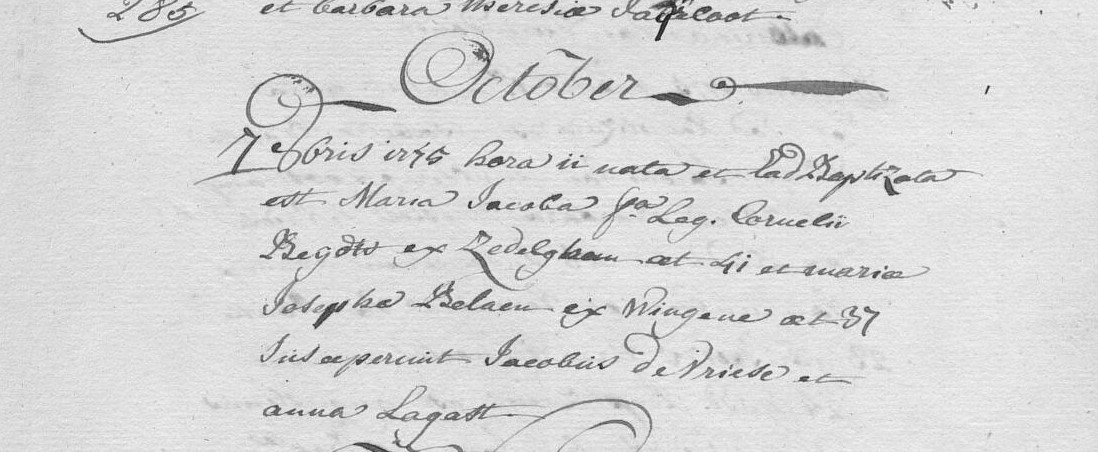 285
et barbara theresiæ Jacqeloot.
Octõber
7 8bris 1775 hora ii nata et Ead Baptizata
est Maria Jacoba fa. Leg. Cornelii
Begodts ex Zedelghem æt 41 et mariæ
Josepha Belaen ex Wingene æt 37
Susceperunt Jacobus de Vriese et
anna Lagast